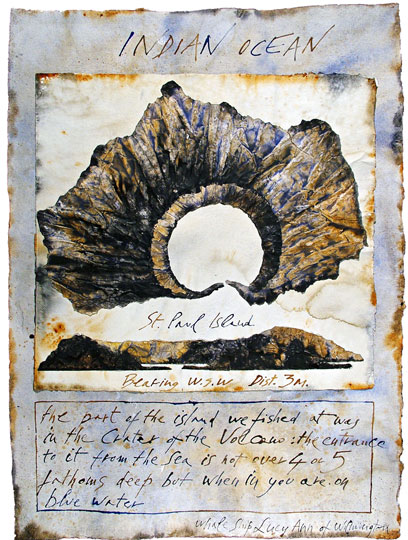 INDIAN OCEAN
St. Paul Island
Bearing W.S.W Dist. 3 M.
the part of the island we fished at was
in the Crater of the Volcano: the entrance
to it from the sea is not over 4 or 5
fathoms deep but when in you are on
blue water
Whale Ship Lucy Ann of Wilmington